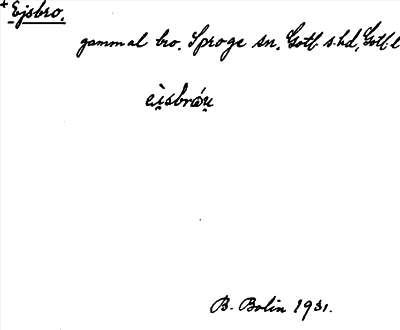 + Ejsbro.
gammal bro. Sproge sn. Gotl. s. hd, Gotl. l
èi̯sbróu̯
B. Bolin 1931.